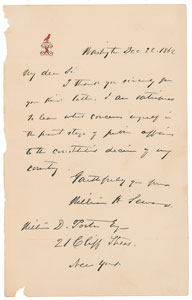 Washington Dec 22. 1862
My dear Sir
I thank you sincerely for
you kind letter. I am
to leave what concerns myself in
the present stage of public affairs
to the decision of my
country.
Faithfully you
William H. Seward
William D. Porter Esq
21 Cliff Street
New York.